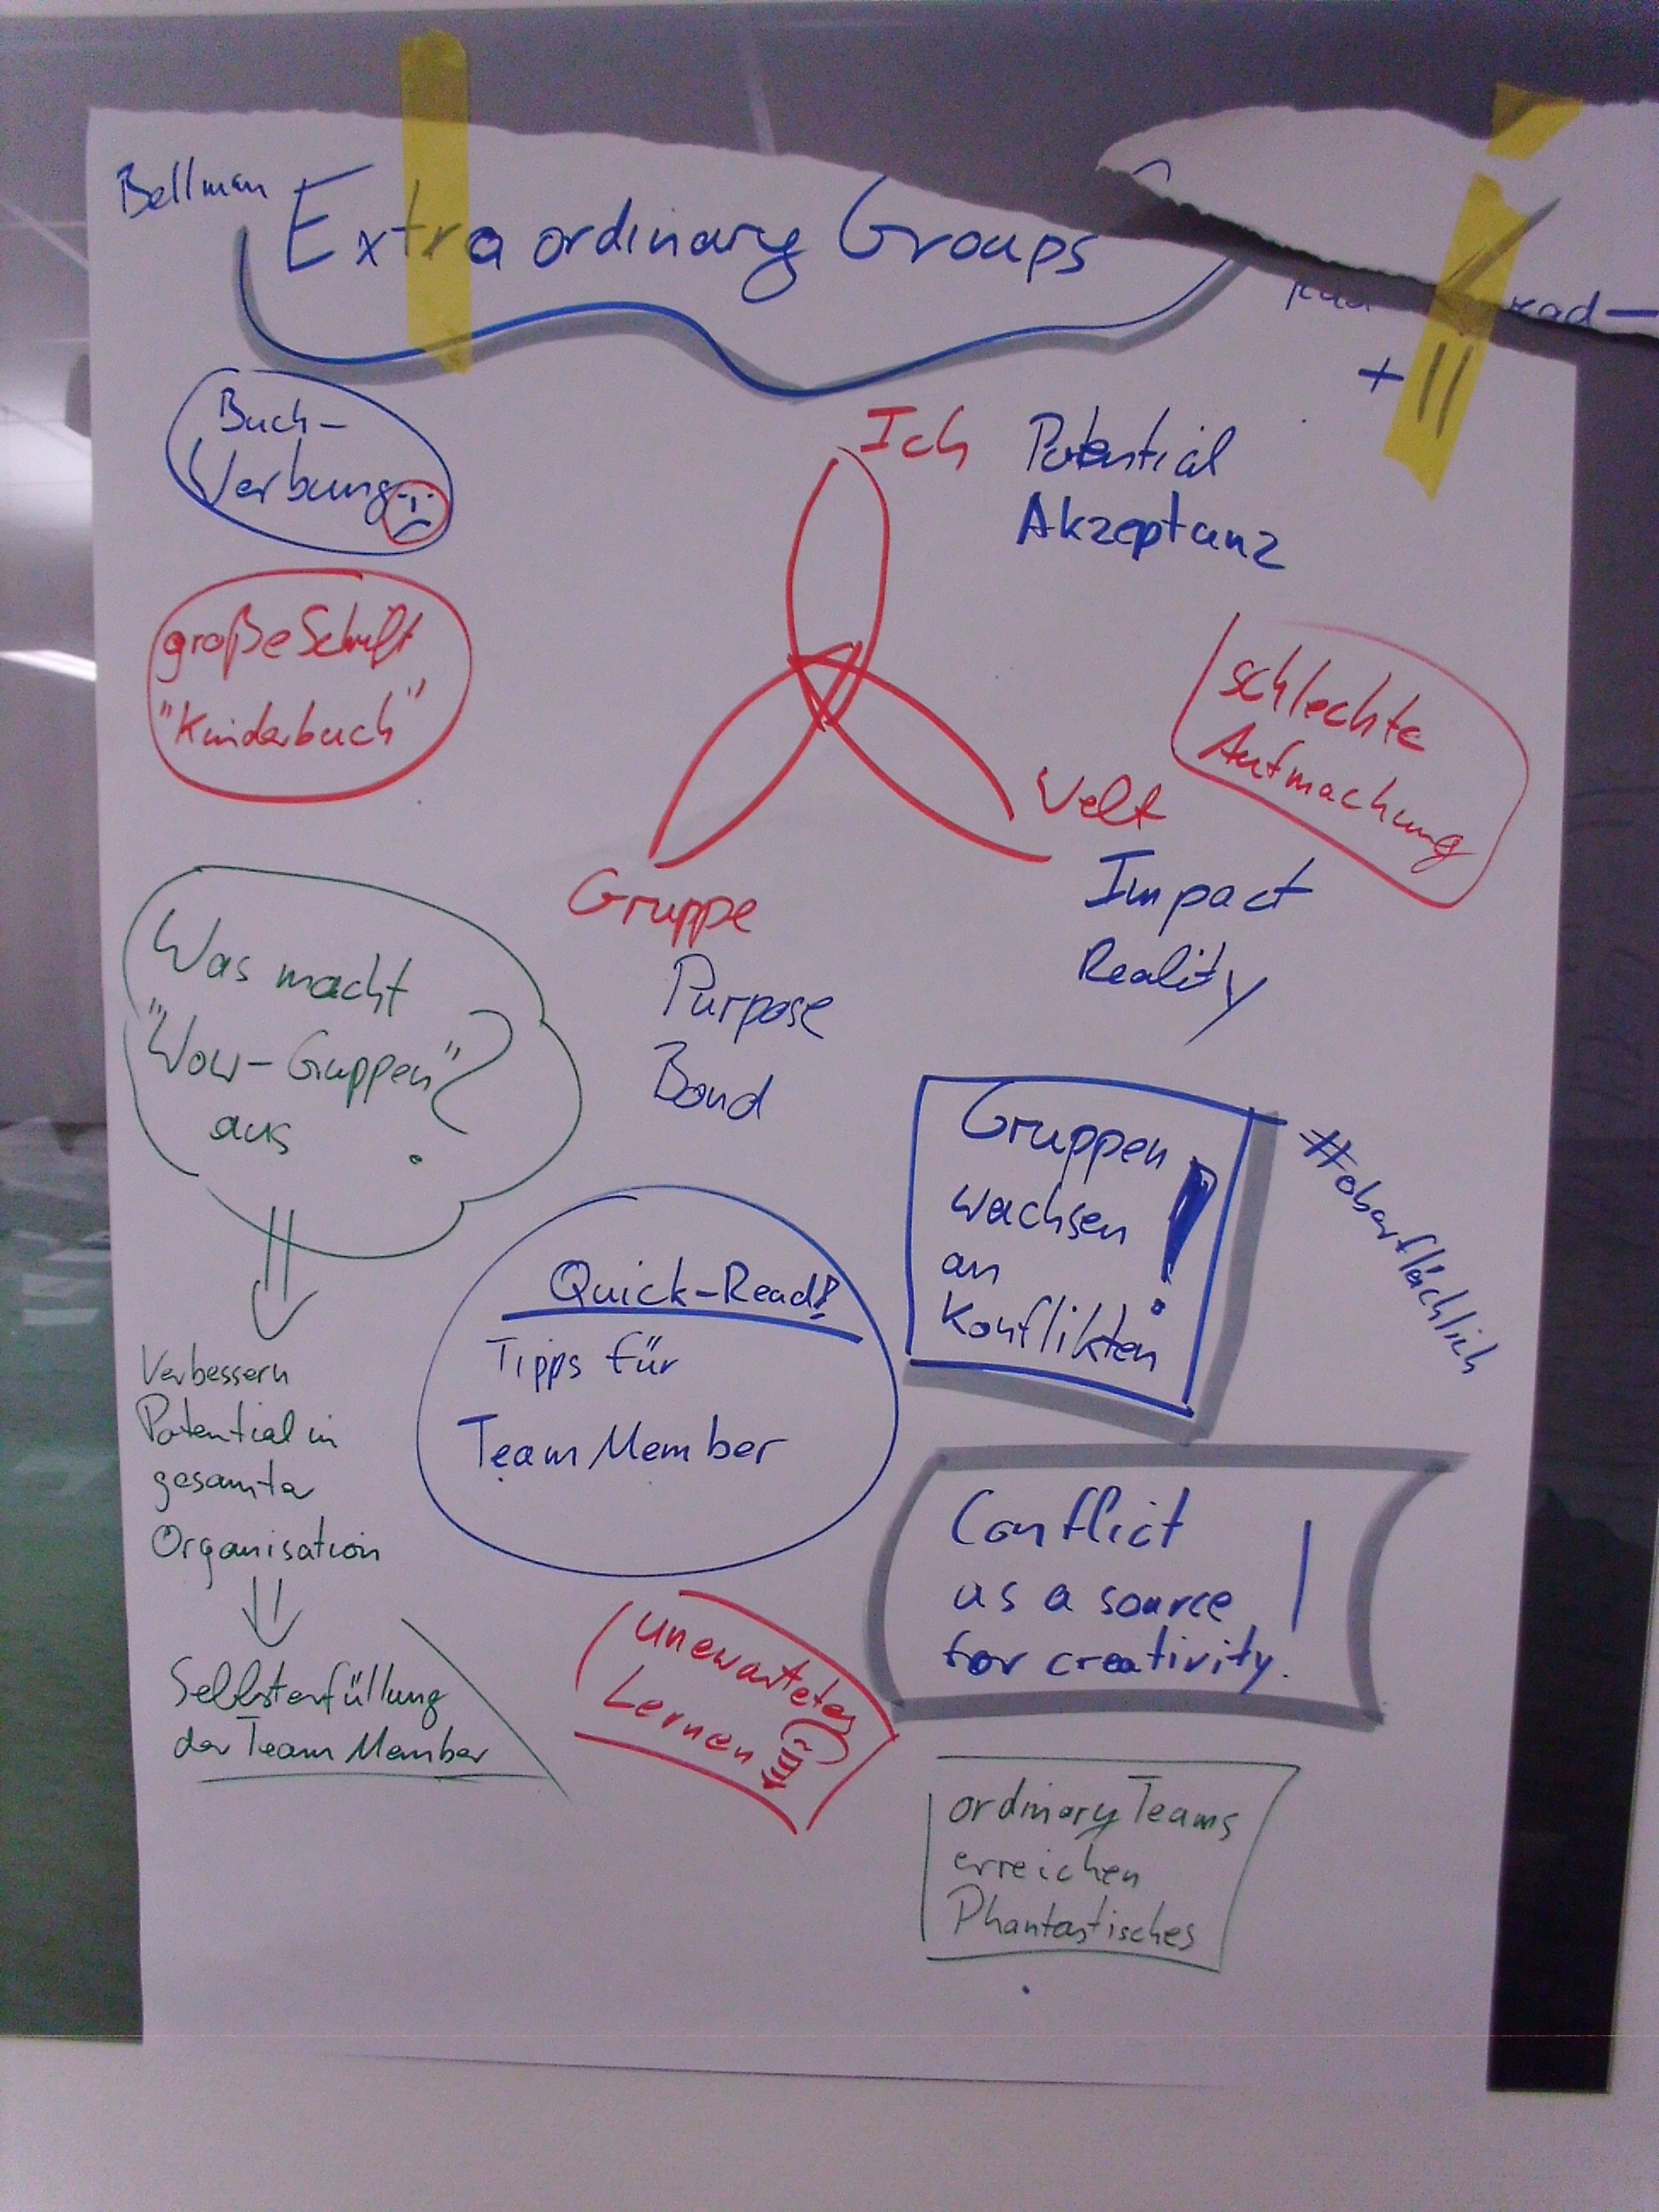 Bellman
Extraordinary Groups
+
Buch-
Werbung
große Schrift
"Kinderbuch"
Ich
Potential
Akzeptanz
schlechte
Aufmachung
Welt
Impact
Reality
Gruppe
Purpose
Bond
Was macht
"Wow-Gruppen"
aus ?
Verbessern
Potential in
gesamter
Organisation
Selbsterfüllung
der Team Member
Quick-Read!
Tipps für
Team Member
Gruppen
wachsen
an
Konflikten !
#oberflächlich
Conflict
as a source
for creativity.
unewartetes
Lernen
ordinary Teams
erreichen
Phantastisches